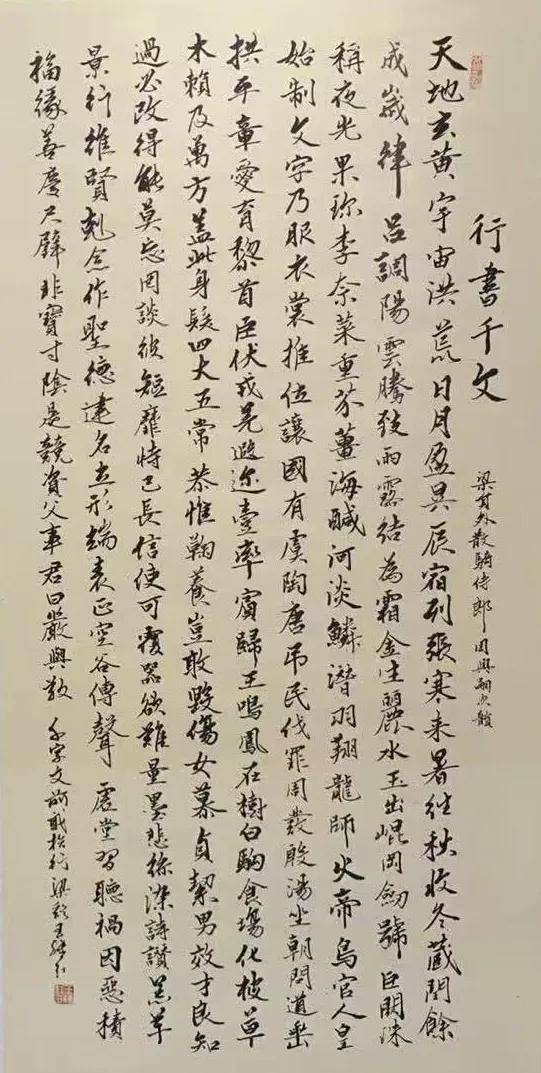 行書千文
梁員外散騎侍郎周興嗣次韻
天地玄黃宇宙洪荒日月盈昃辰宿列張寒来暑往秋收冬藏閏餘
成歲律呂調陽雲騰致雨露結為霜金生麗水玉出崐岡劍號巨闕珠
稱夜光果珍李柰菜重芥薑海鹹河淡鱗潛羽翔龍師火帝鳥官人皇
始制文字乃服衣裳推位讓國有虞陶唐吊民伐罪周發殷湯坐朝問道垂
拱平章愛育黎首臣伏戎羌遐迩壹率賓歸王鳴鳳在樹白駒食場化被草
木賴及萬方蓋此身髮四大五常恭惟鞠養豈敢毀傷女慕貞絜男效才良知
過必改得能莫忘罔談彼短靡恃己長信使可覆器欲難量墨悲絲染詩讚羔羊
景行維賢剋念作聖德建名立形端表正空谷傳聲虛堂習聽禍因惡積
福緣善慶尺璧非寶寸陰是競資父事君曰嚴與敬 千字文節